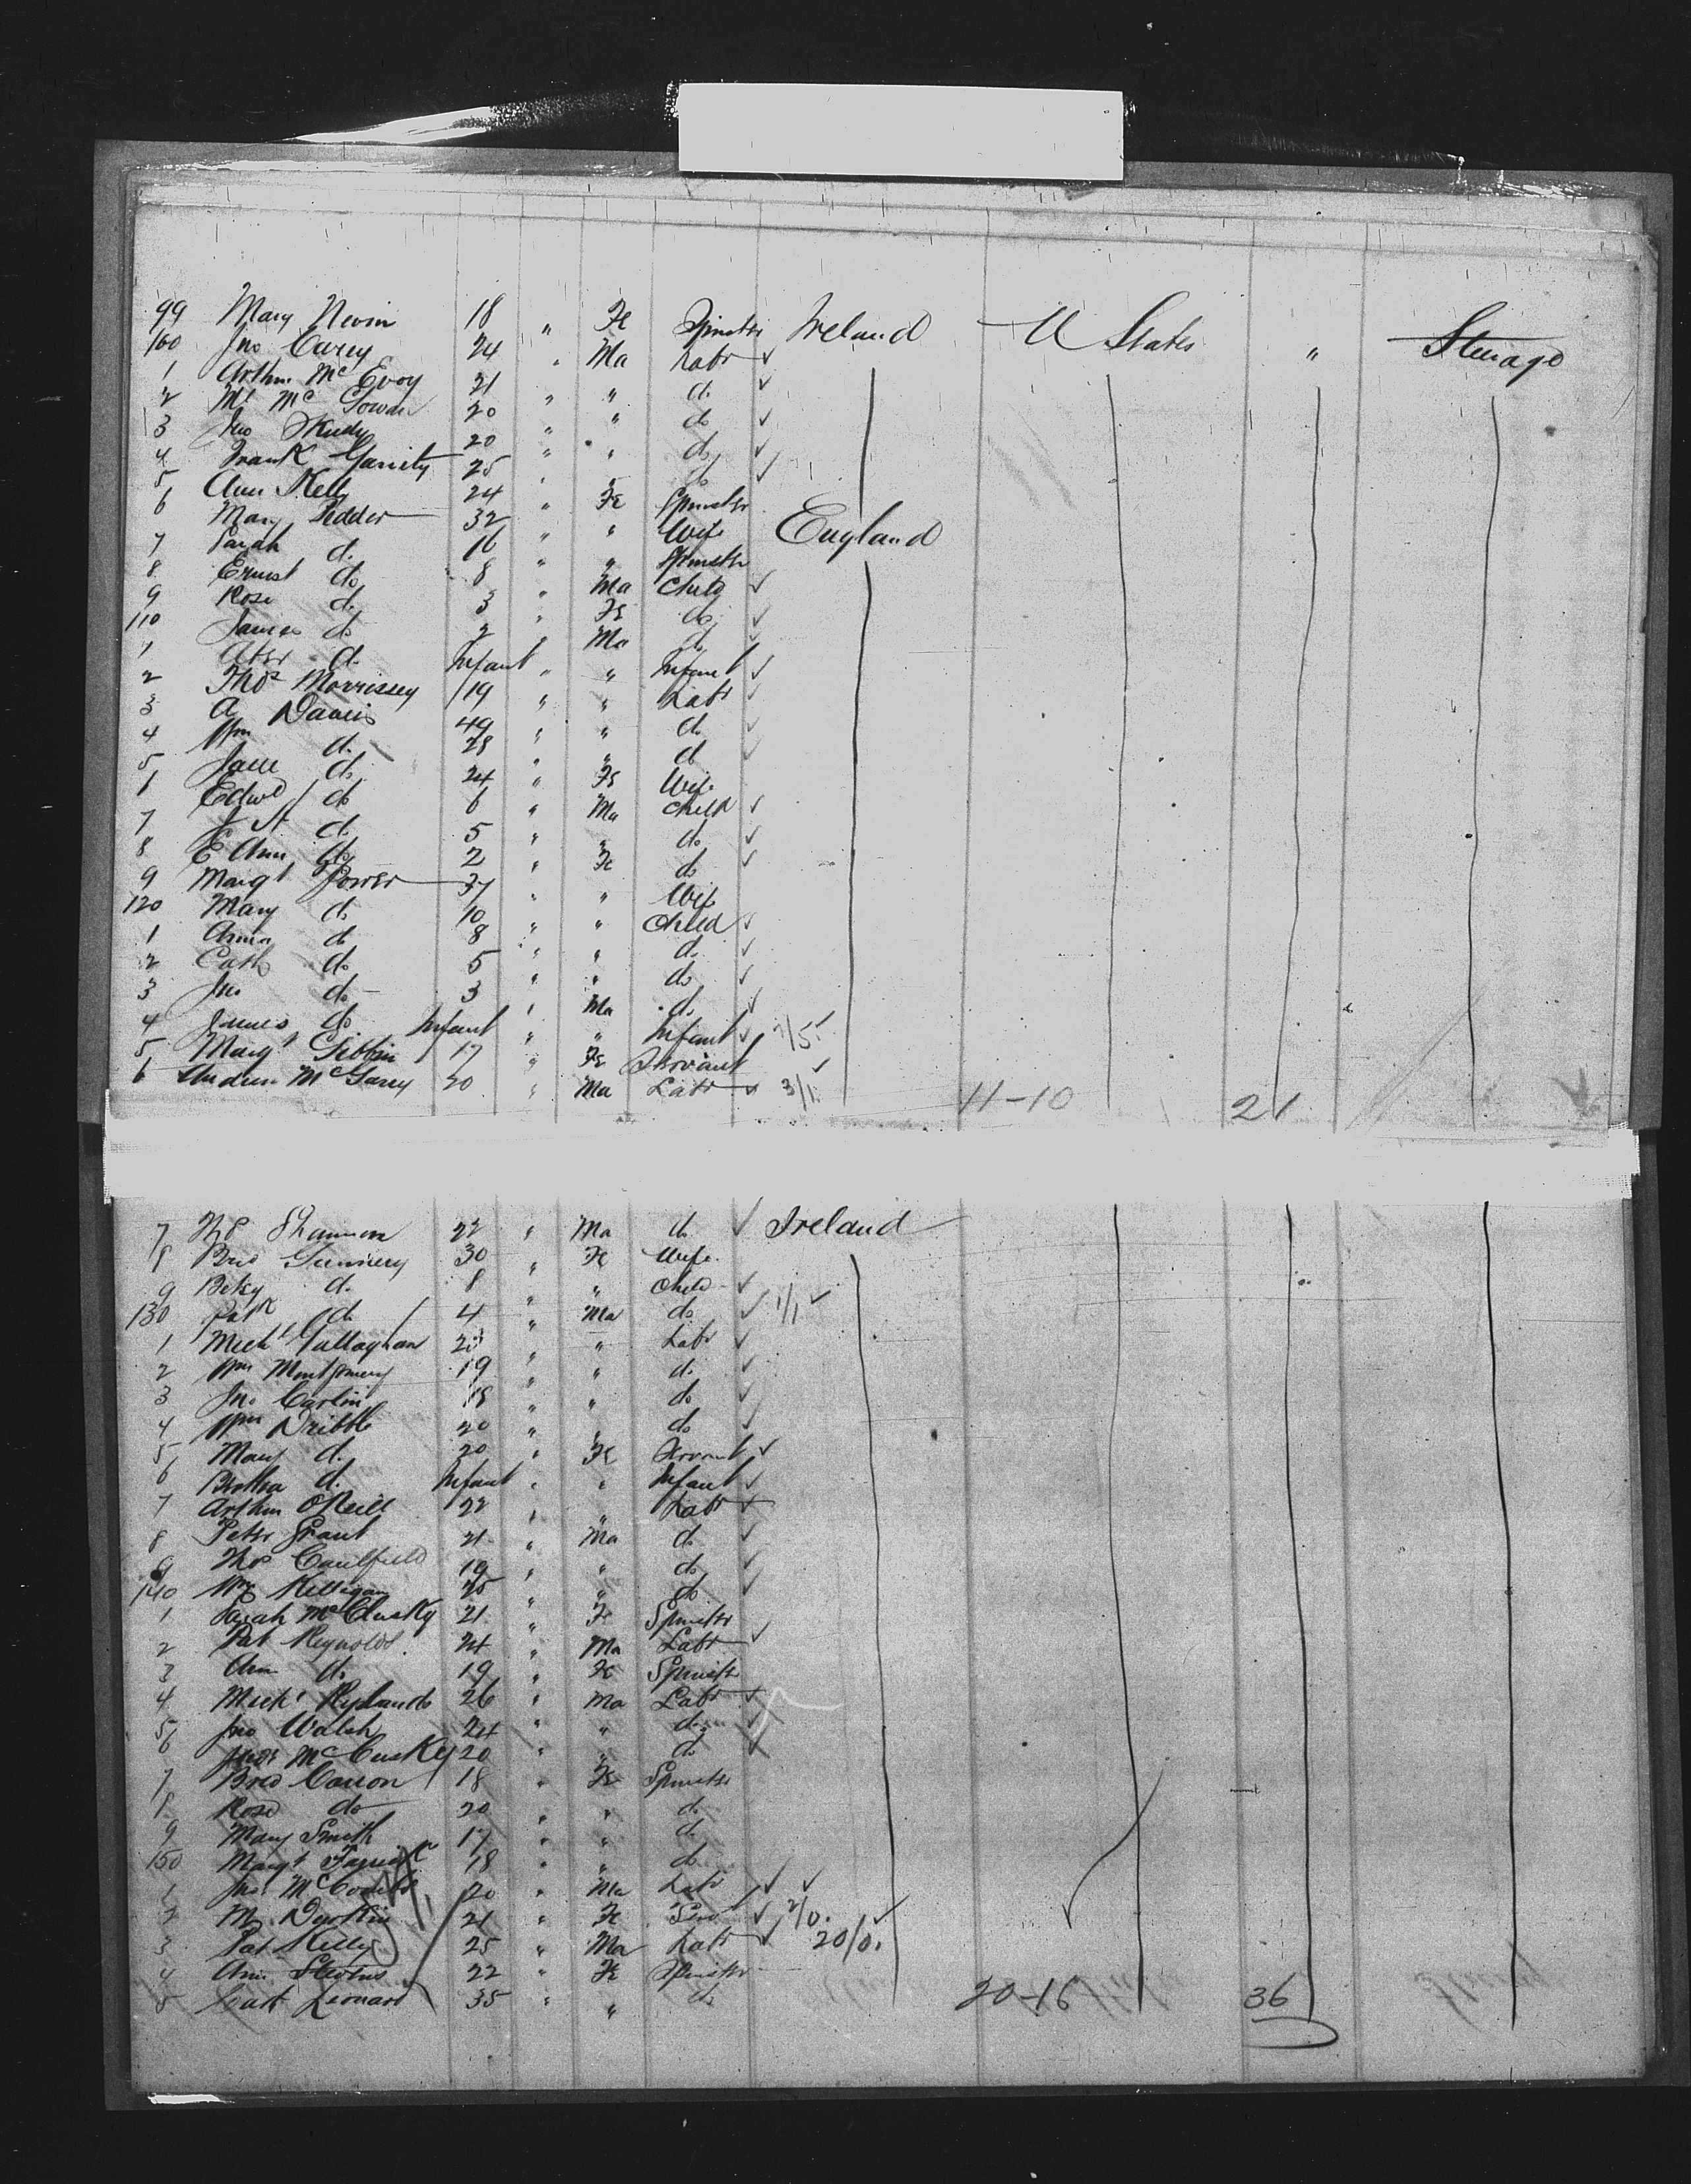 99 Mary Nevin 18 " Fe Spinster Ireland U States " Steerage
100 Jno Carey 24 " Ma Labr ✓
1 Arthur McEvoy 21 " " do ✓
2 Ml McGowan 20 " " do ✓
3 Jno 20 " " do ✓
4 Frank Garrity 25 " " do ✓
5 Ann Kelly 24 " Fe Spinster
6 Mary Tedder 32 " " Wife England
7 Sarah do 16 " " Spinster
8 Ernest do 8 " Ma Child ✓
9 Rose do 3 " Fe do ✓
110 James do 2 " Ma do ✓
1 do Infant " " Infant ✓
2 Thos Morrissey 19 " " Labr ✓
3 A Davis 49 " " do ✓
4 Wm do 28 " " do ✓
5 Jane do 24 " Fe Wife
6 Edwd do 6 " Ma Child ✓
7 do 5 " " do ✓
8 E Ann do 2 " Fe do ✓
9 Margt Power 37 " " Wife
120 Mary do 10 " " Child ✓
1 Anna do 8 " " do ✓
2 Cath do 5 " " do ✓
3 Jno do 3 " Ma do ✓
4 James do Infant " " Infant ✓ 7/5 ✓
5 Margt Gibbin 17 " Fe Servant ✓
6 Andrew McGarey 20 " Ma Labr ✓ 3/1 11-10 21
7 Thos Shannon 22 " Ma do ✓ Ireland
8 Brid 30 " Fe Wife
9 Betsy do 8 " " Child ✓
130 Patk do 4 " Ma do ✓ 1/1 ✓
1 Michl Gallaghan " " Labr ✓
2 Wm Montgomery 19 " " do ✓
3 Jno Carlin 18 " " do ✓
4 Wm Dribble 20 " " do ✓
5 Mary do 20 " Fe Servant ✓
6 Bertha do Infant " " Infant ✓
7 Arthur O'Neill 22 " " Labr ✓
8 Peter Grant 21 " Ma do ✓
9 Thos Caulfield 19 " " do ✓
140 Wm Killigan 25 " " do ✓
1 Sarah McClusky 21 " Fe Spinster
2 Pat Reynolds 24 " Ma Labr ✓
3 Ann do 19 " Fe Spinster
4 Michl Rylands 26 " Ma Labr ✓
5 Jno Walsh 24 " " do ✓
6 McCuskey 20 " " do ✓
7 Brid Carron 18 " Fe Spinster
8 Rose do 20 " " do
9 Mary Smith 17 " " do
150 Margt 18 " " do
1 Jno 20 " Ma Labr ✓ ✓
2 M Durkin 21 " Fe ✓ 2/0. ✓
3 Pat Kelly 25 " Ma Labr ✓ 20/0.
4 Ann Stevens 22 " Fe Spinster
5 Cath Leonard 35 " " do 20-16 36